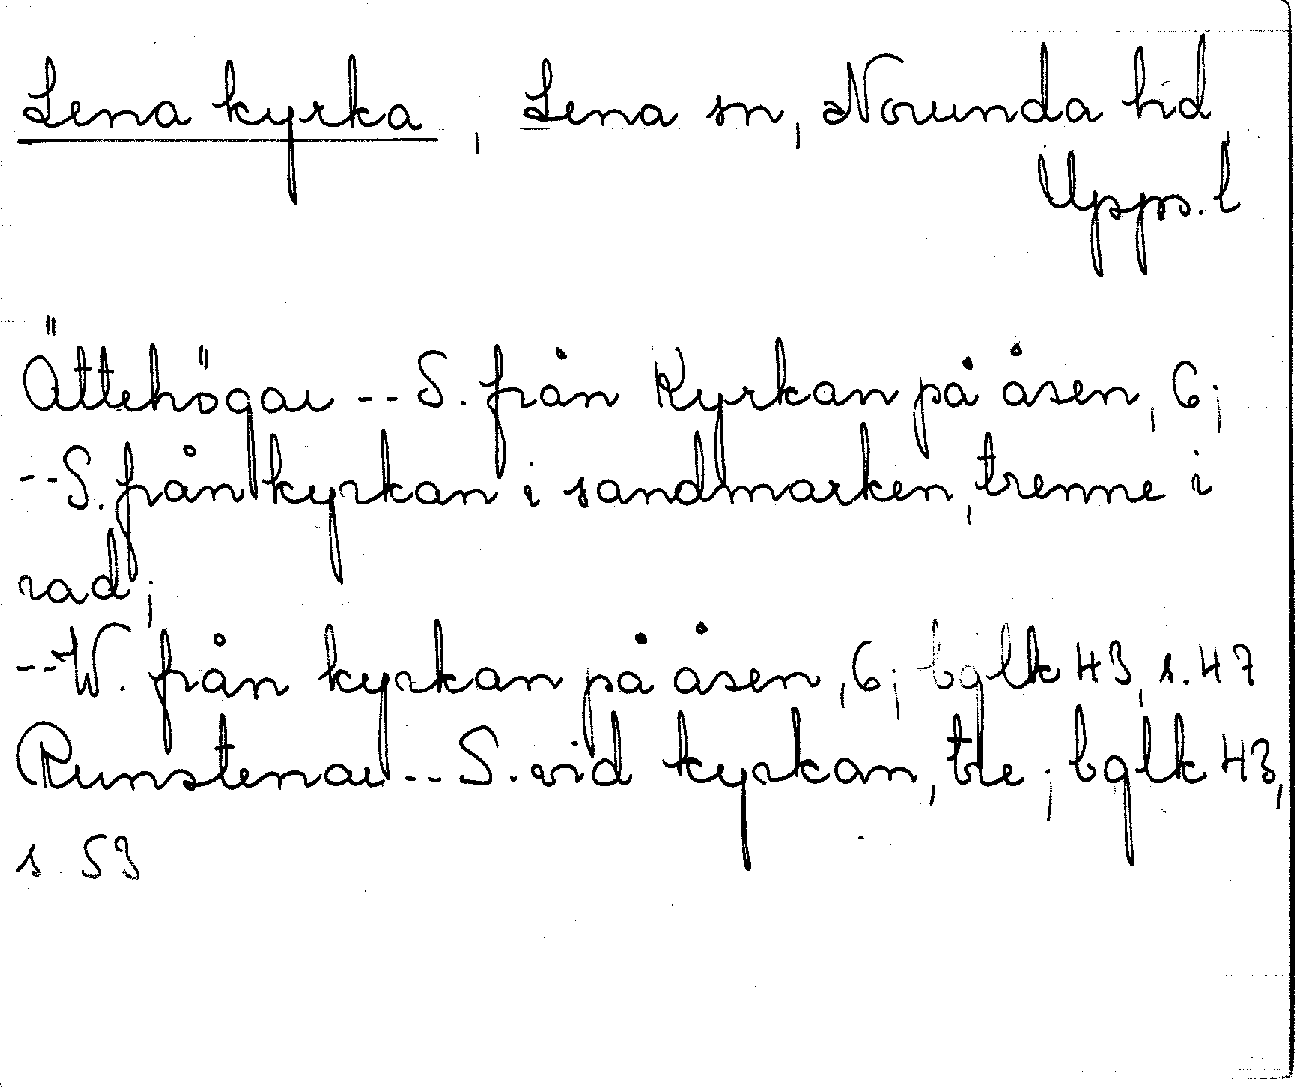 Lena kyrka, Lena sn, Norunda hd
Upps. l
Ättehögar -- S. från Kyrkan på åsen, 6;
-- S. från kyrkan i sandmarken, trenne i
rad;
-- W. från kyrkan på åsen, 6; bqlk 43, s. 47
Runstenar -- S. vid kyrkan, tre; bqlk 43,
s. 53